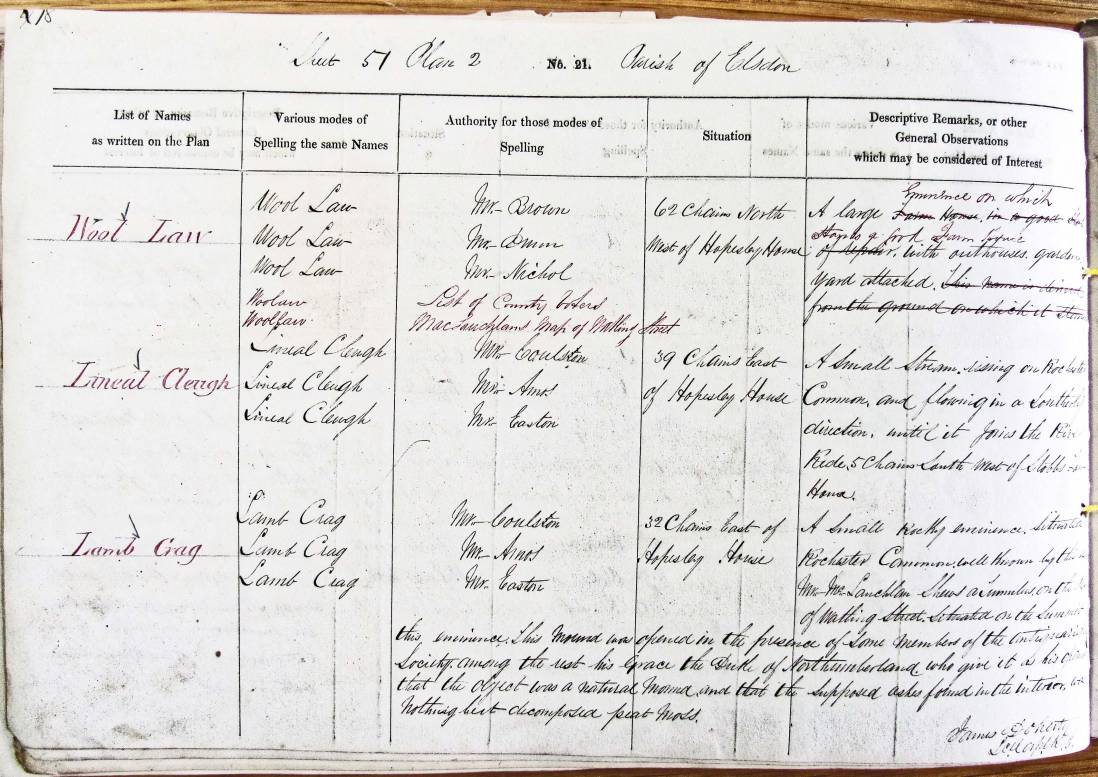 Sheet 51 Plan 2 No. 21. Parish of Elsdon
List of Names
as written on the Plan
Various modes of
Spelling the same Names
Authority for those modes of
Spelling
Situation
Descriptive Remarks, or other
General Observations
which may be considered of Interest
Wool Law
Wool Law
Wool Law
Wool Law
Woolaw
Woollaw
Mr. Brown
Mr.
Mr. Nichol
List of County Voters
MacLauchlans Map of Watling Street
62 Chains North
West of Hopesley House
Eminence on which
A large Farm House, in a good
Stands a good Farm House
of repair. with outhouses. garden
yard attached. This name is derived
from the ground on which it stands
Lineal Cleugh
Lineal Cleugh
Lineal Cleugh
Lineal Cleugh
Mr. Coulston
Mr. Amos
Mr. Easton
39 Chains East
of Hopesley House
A Small Stream. rising on Rochester
Common, and flowing in a Southerly
direction, until it Joins the River
Rede, 5 Chains South West of Stobbs
House.
Lamb Crag
Lamb Crag
Lamb Crag
Lamb Crag
Mr. Coulston
Mr. Amos
Mr. Easton
32 Chains East of
Hopesley House
A Small rocky eminence. Situated
Rochester Common, well known by
Mr. McLauchlan Shews a Tumulus, on the
of Watling Street. Situated on the Summit
this, eminence. This Mound was opened in the presence of Some members of the Antiquarian
Society. among the rest his Grace the Duke of Northumberland who give it as his
that the object was a natural Mound, and that the Supposed ashes found in the interior,
Nothing but decomposed peat Moss.
James Doherty